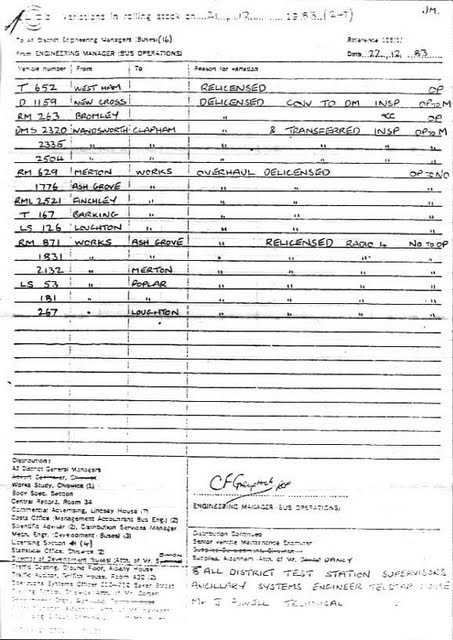 variations in rolling stock on 21. 12 1983 (2-7) JM.
To All District Engineering Managers (Buses) (16) Reference
From ENGINEERING MANAGER (BUS OPERATIONS) Date 22.12.83
Vehicle number From To Reason for variation
T 652 WEST HAM RELICENSED OP
D 1159 NEW CROSS DELICENSED CONV TO DM INSP OP TO M
RM 263 BROMLEY " OP
DMS 2320 WANDSWORTH CLAPHAM " & TRANSFERRED INSP OP TO M
2335 " " " " " "
2504 " " " " " "
RM 629 MERTON WORKS OVERHAUL DELICENSED OP TO NO
1776 ASH GROVE " " " "
RML 2521 FINCHLEY " " " "
T 167 BARKING " " " "
LS 126 LOUGHTON " " " "
RM 871 WORKS ASH GROVE " RELICENSED RADIO 4 NO TO OP
1831 " " " " " "
2132 " MERTON " " " "
LS 53 " POPLAR " " " "
181 " " " " " "
267 " LOUGHTON " " " "
Distribution:
All District General Managers
Works Study, Chiswick (1)
Body Spec. Section
Central Record, Room 34
Commercial Advertising, Lindsey House (7)
Costs Office (Management Accountant Bus Eng.) (2)
Scientific Adviser (2), Distribution Services Manager
Mech. Engr. (Development - Buses) (3)
Licensing Section (4)
Statistical Office, Chiswick (2)
Director of Development (Buses) (Attn. of Mr.
Traffic Costing, Ground Floor, Albany House
Traffic Auditor, Griffith House, Room 422 (2)
ENGINEERING MANAGER (BUS OPERATIONS)
Distribution Continued
Senior Vehicle Maintenance Examiner
Supplies, Aldenham (Attn. of Mr. DANCY)
8 ALL DISTRICT TEST STATION SUPERVISORS
ANCILLARY SYSTEMS ENGINEER TELSTAR HOUSE
Mr J POWELL TECHNICAL